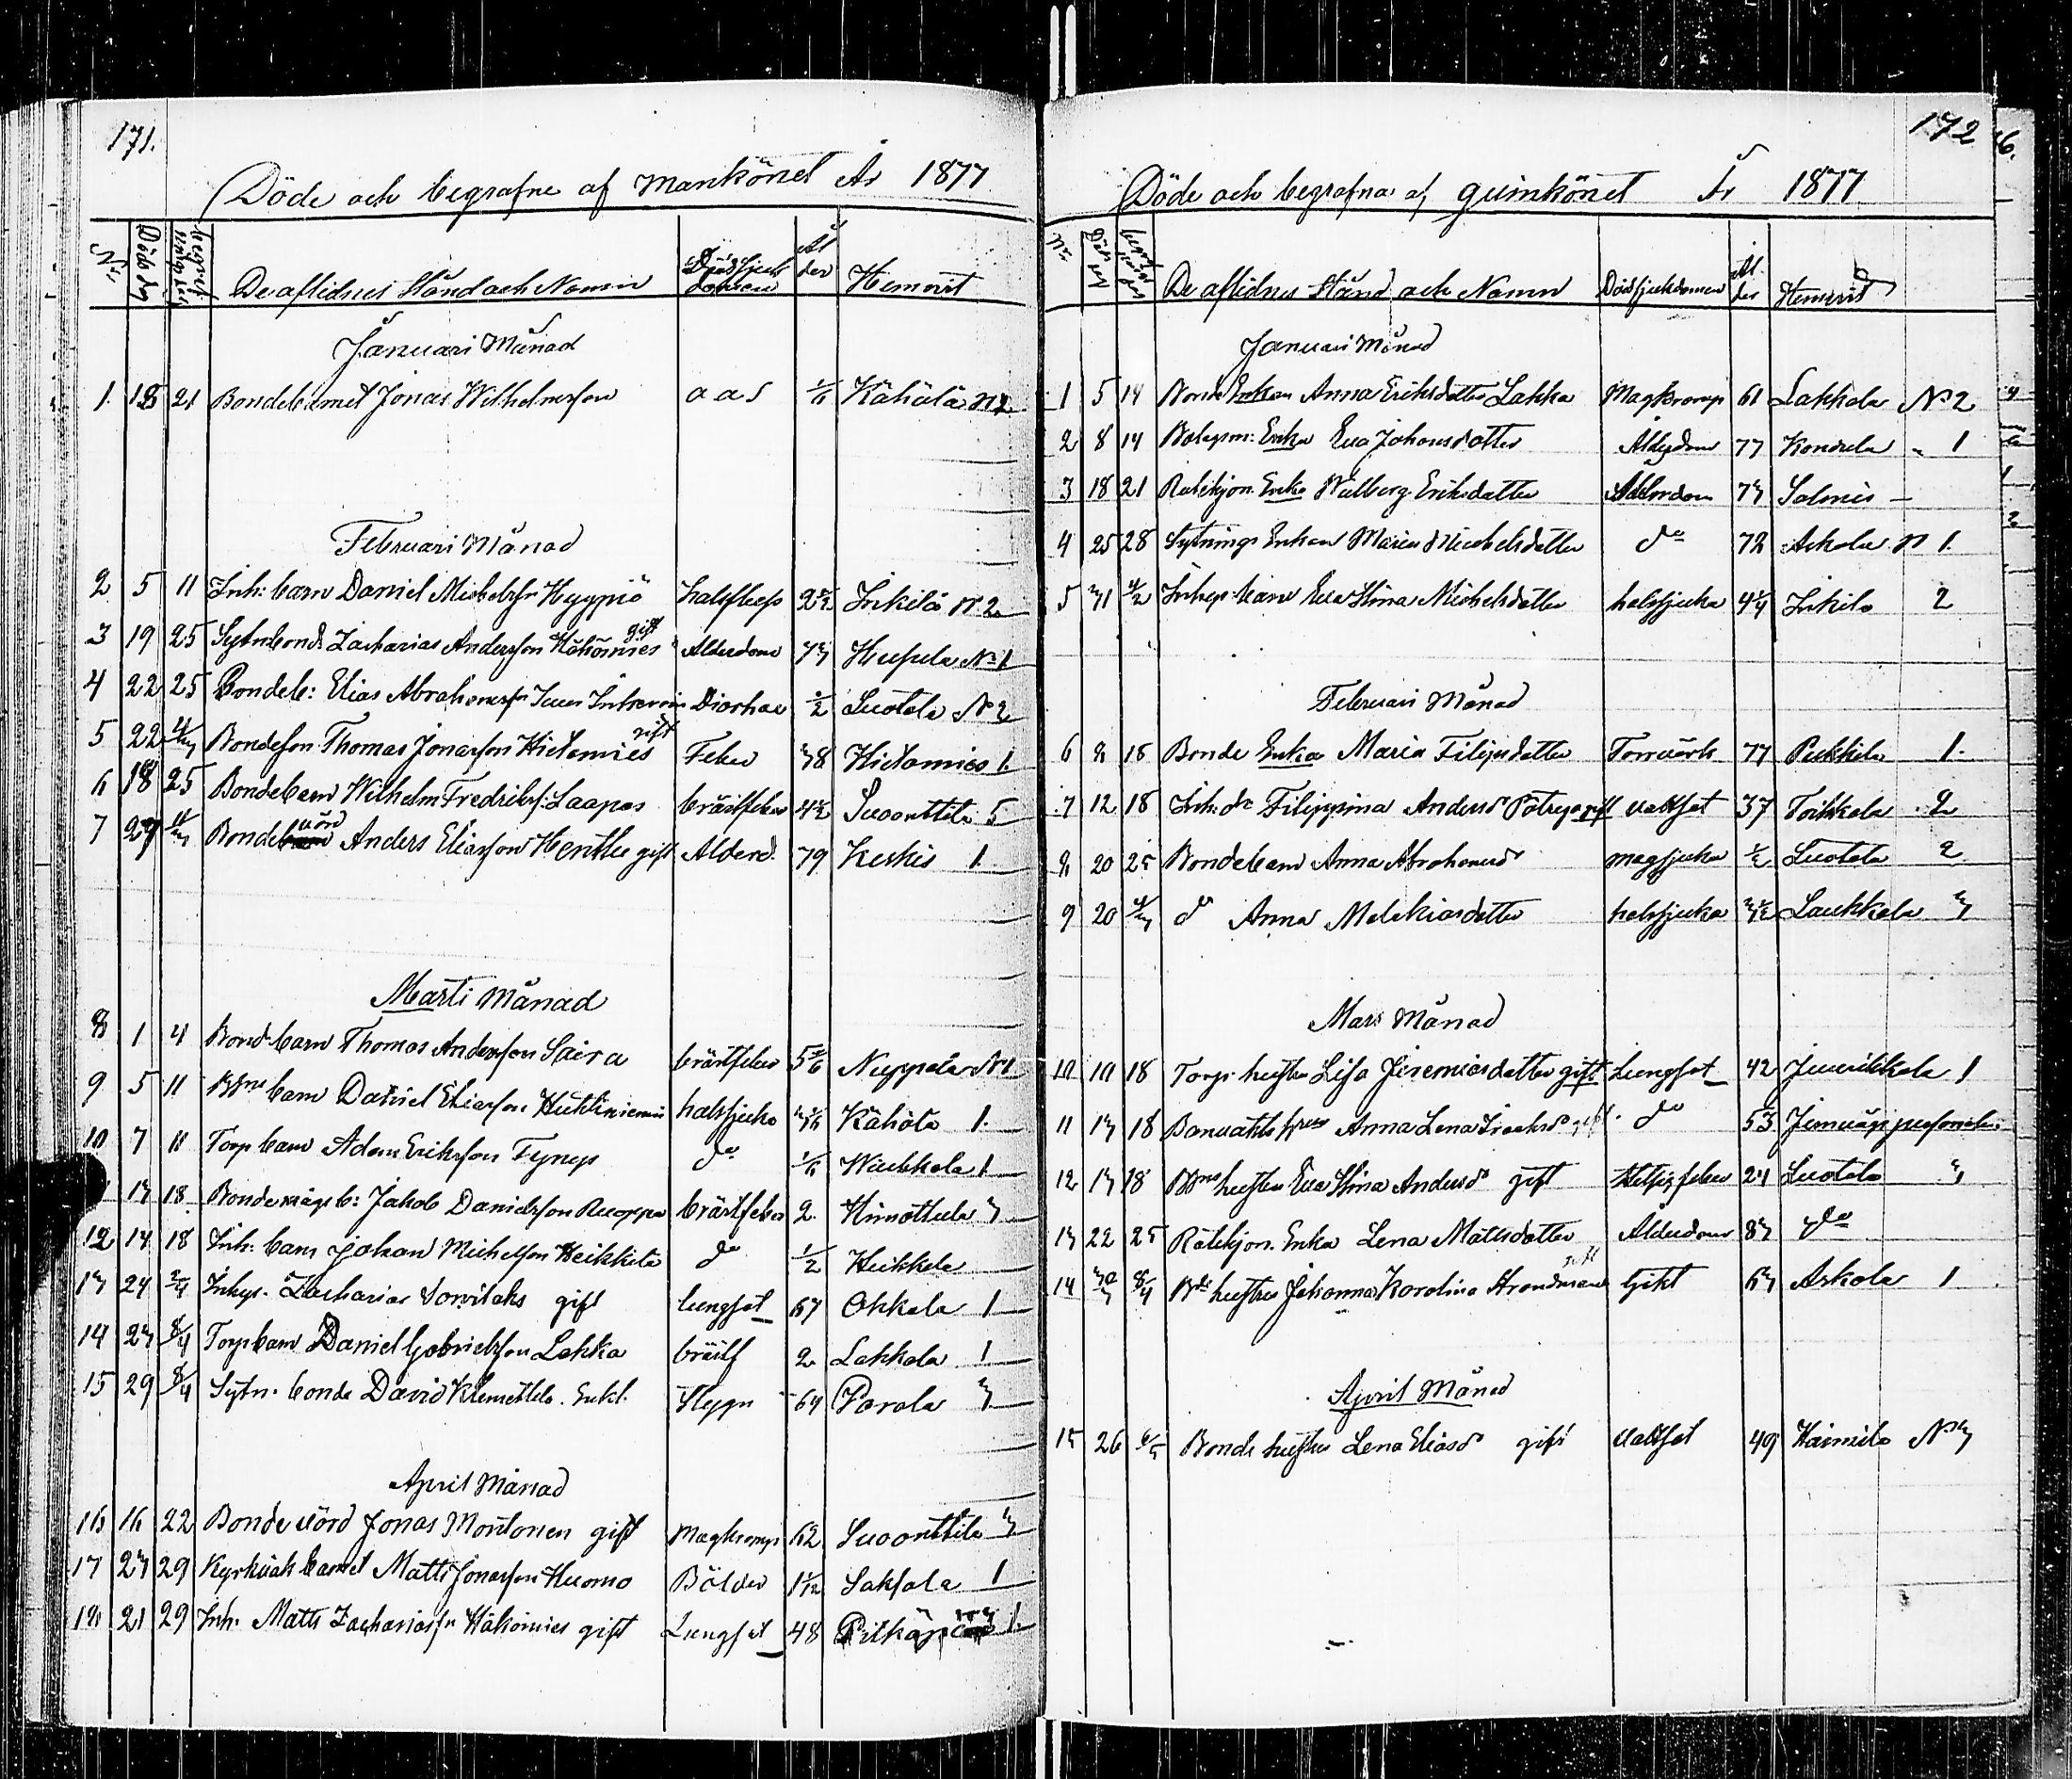 171.
Döde och begrafne af Mankönet År 1877
N:r Döds dag begrafnings dag De aflidnes Stånd och Namn Dödssjukdomen Ålder Hemvist
Januari Månad
1. 18 21 Bondebarnet Jonas Wilhelmsson a a s Kähälä N 2
Februari Månad
2 5 11 Inh: barn Daniel Michelss: Hyypiö 2 Inkilä N 2
3 19 25 Sytn bond. Zacharias Andersson Hähömies gift Alderdom 73 Hupula N 1
4 22 25 Bondeb: Elias Abrahamss: Diarhae 1/2 Luotola N 2
5 22 4/3 Bondeson Thomas Jonasson Hietamies gift Feber 38 Hietamies 1.
6 18 25 Bondebarn Wilhelm Fredrikss: Laapas bröstfeber 4 1/2 Suonttila 5
7 27 4/3 Bonde värd Anders Eliasson Henttu gift Alderd. 79 Keskis 1.
Marti Månad
8 1 4 Bond barn Thomas Andersson Saira bröstfeber 5 Nuppola N 1
9 5 11 barn Daniel Eliasson halssjuka Kähölä 1.
10 7 11 Torp barn Adam Eriksson do Wiukkala 1
13 18 Bonde mågs b: Jakob Danielsson Ruoppa bröstfeber 2. Himottula 3
12 14 18 Inh. barn Johan Michelsson Heikkilä do 1/2 Heikkela
13 24 2/4 Inhys. Zacharias gift lungsot 67 Okkola 1
14 23 8/4 Torp barn Daniel Gabrielsson Lakka bröstf 2 Lakkala 1
15 29 8/4 Sytn. bonde David Klemettilä. Enkl. Slagn 64 Parola 3
April Månad
16 16 22 Bonde värd Jonas Montonen gift Magkramp 62 Suonttila 3
17 23 29 Kyrkvakt barnet Matts Jonasson Huomo Bölder 1 1/12 Saksala 1
18 21 29 Inh. Matts Zachariass:n Hähömies gift Lungsot 48 Pitkäpää 1.
172
Döde och begrafna af quinkönet År 1877
N:r Döds dag begrafnings dag De aflidnes Stånd och Namn Dödssjukdomen Ålder Hemvist
Januari Månad
1 5 14 Bonde Enkan Anna Eriksdotter Lakka Magkramp 61 Lakkala N 2
2 8 14 Bolagsm: Enka Eva Johansdotter Ålderdom 77 Kondula " 1
3 18 21 Ratekjon. Enka Walborg Eriksdotter Ålderdom 73 Salmis –
4 25 28 Sytnings Enkan Maria Michelsdotter do 72 Askola N 1.
5 31 4/2 Inhys barn Eva Stina Michelsdotter halssjuka 4 1/4 Inkilä 2
Februari Månad
6 8 18 Bonde Enka Maria Filipsdotter Torrvärk 77 Pekkila 1.
7 12 18 Inh. dr Filippina Andersdr Pötry gift vattsot 37 Toikkala 2
8 20 25 Bondebarn Anna Abrahamsdr magsjuka 1/2 Luotola 2
9 20 4/3 do Anna Melekiasdotter halssjuka 3 1/2 Laukkala 3
Mars Månad
10 10 18 Torp. hustru Lisa Jeremiasdotter gift Lungsot 42 Juurikkala 1
11 13 18 Banvakts hru Anna Lena Isaksdr gift do 53 Jernvägs personalen
12 13 18 hustru Eva Stina Andersdr gift Hetsig feber 24 Luotola 3
13 22 25 Rätekjon. Enka Lena Mattsdotter Ålderdom 83 do
14 30/3 8/4 hustru Johanna Karolina Strandman gift Gikt 63 Askola 1
April Månad
15 26 6/5 Bonde hustru Lena Eliasdr gift vattsot 49 Haimila N 3